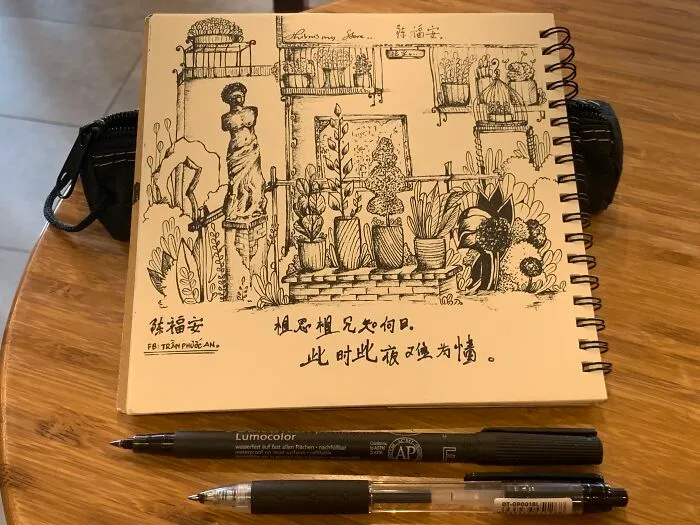 陈福安.
陈福安
FB: TRẦN PHƯỚC AN.
相思相见知何日
此时此夜难为情。
Lumocolor
wasserfest auf fast allen Flächen · nachfüllbar
waterproof on most surfaces · refillable
AP
F